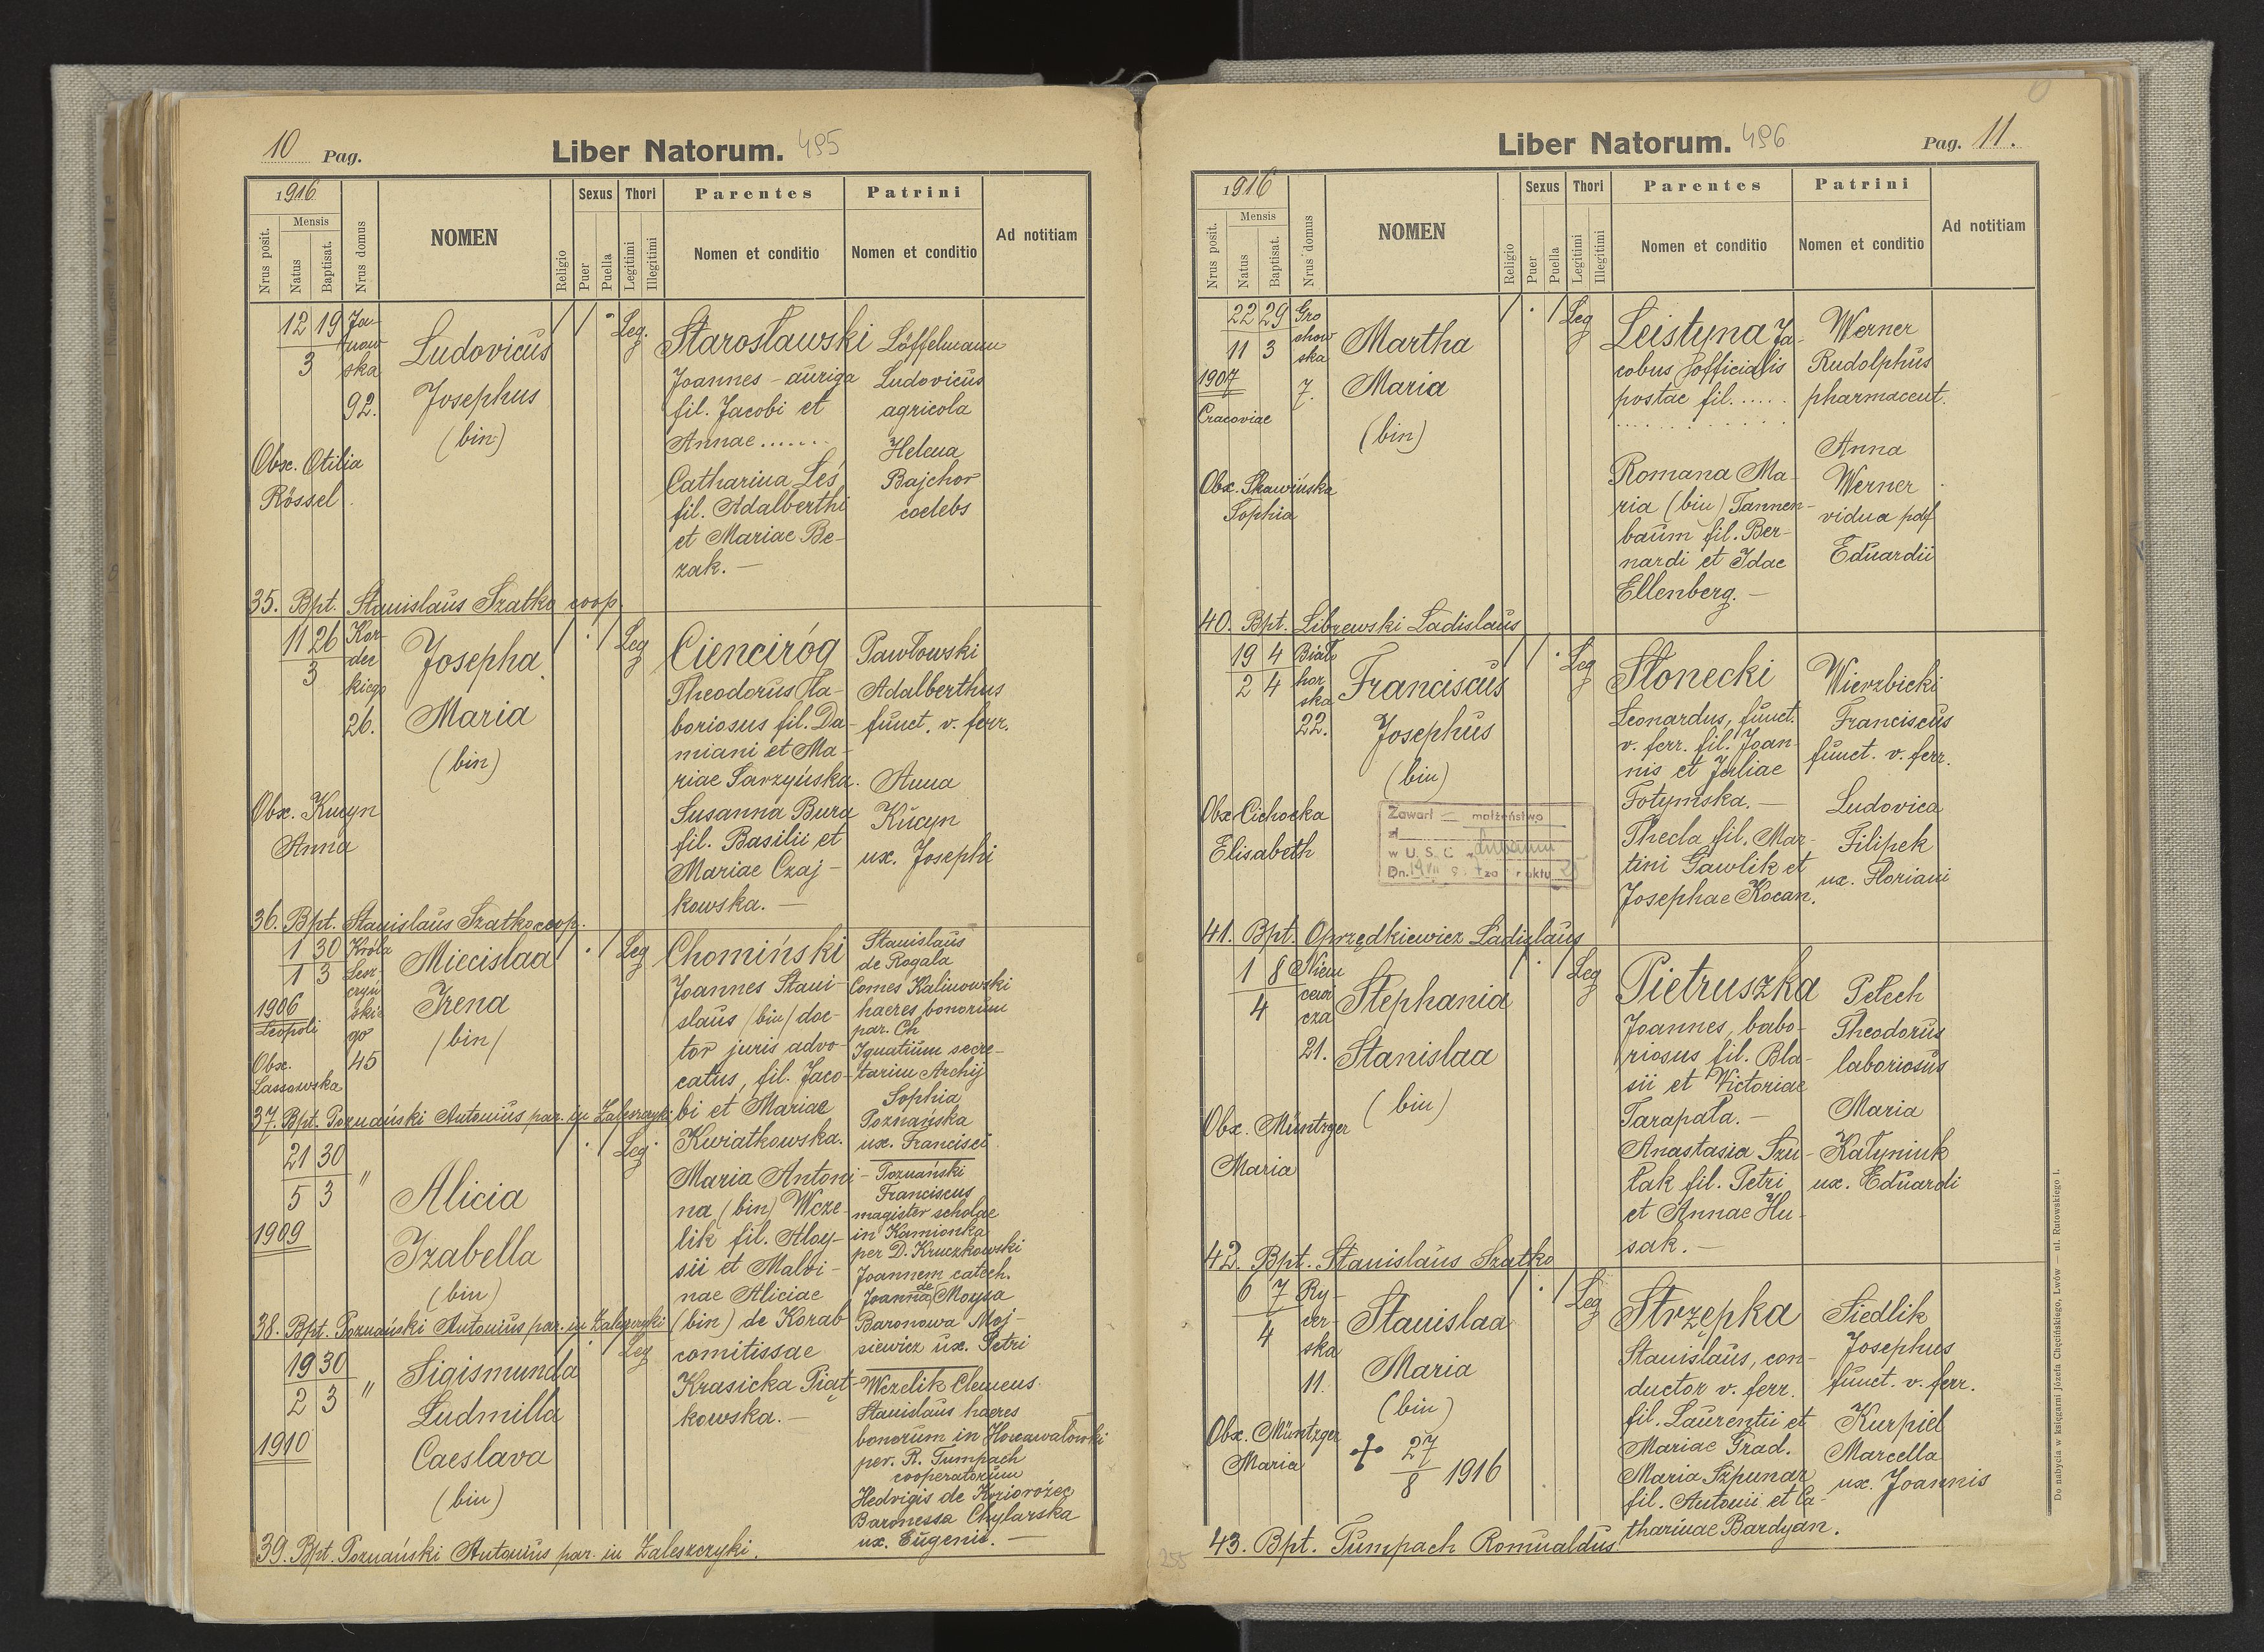 10 Pag.
Liber Natorum. 495
1916
Mensis
Nrus posit.
Natus
Baptisat.
Nrus domus
NOMEN
Religio
Sexus
Puer
Puella
Thori
Legitimi
Illegitimi
Parentes
Nomen et conditio
Patrini
Nomen et conditio
Ad notitiam
12 19
3
Ja-
now
ska
92.
Ludovicus
Josephus
(bin)
Leg.
Obx. Otilia
Rössel
Starosławski
Joannes - auriga
fil. Jacobi et
Annae .......
Catharina Leś
fil. Adalberthi
et Mariae Be-
zak. —
Löffelmann
Ludovicus
agricola
Helena
Bajchor
coelebs
35. Bpt. Stanislaus Szatko coop.
11 26
3
Kor-
dec
kiego
26.
Josepha
Maria
(bin)
Leg
Obx. Kucyn
Anna
Cienciróg
Theodorus la-
boriosus fil. Da-
miani et Ma-
riae Sarzyńska.
Susanna Bura
fil. Basilii et
Mariae Czaj-
kowska. —
Pawłowski
Adalberthus
funct. v. ferr.
Anna
Kucyn
ux. Josephi
36. Bpt. Stanislaus Szatko coop.
1 30
1 3
1906
Leopoli
Króla
Lesz-
czyń
skie
go
45
Miecislaa
Irena
/bin/
Leg
Obx.
Lassowska
Chomiński
Joannes Stani-
slaus /bin/ doc-
tor juris advo-
catus, fil. Jaco-
bi et Mariae
Kwiatkowska.
Maria Antoni-
na (bin) Wcze-
lik fil. Aloy-
sii et Malvi-
nae Aliciae
(bin) de Korab
comitissae
Krasicka Piąt-
kowska. —
Stanislaus
de Rogala
Comes Kalinowski
haeres bonorum
par. Ch
Ignatium secre-
tarium Archij
Sophia
Poznańska
ux. Francisci
37. Bpt. Poznański Antonius par. in Zaleszczyki
21 30
5 3
1909
"
Alicia
Izabella
(bin)
Leg
Poznański
Franciscus
magister scholae
in Kamionka
per D. Kruczkowski
Joannem catech.
Joanna de Moysa
Baronowa Moj-
siewicz ux. Petri
38. Bpt. Poznański Antonius par. in Zaleszczyki
19 30
2 3
1910
"
Sigismunda
Ludmilla
Caeslava
(bin)
Leg
Wczelik Clemens
Stanislaus haeres
bonorum in
per. R. Tumpach
cooperatorum
Hedvigis de Koziorożec
Baronessa Chylarska
ux. Eugenii. —
39. Bpt. Poznański Antonius par. in Zaleszczyki.
Liber Natorum. 496
Pag. 11.
1916
Mensis
Nrus posit.
Natus
Baptisat.
Nrus domus
NOMEN
Religio
Sexus
Puer
Puella
Thori
Legitimi
Illegitimi
Parentes
Nomen et conditio
Patrini
Nomen et conditio
Ad notitiam
22 29
11 3
1907
Cracoviae
Gro
chow
ska
7.
Martha
Maria
(bin)
Leg
Obx. Skawińska
Sophia
Leistyna Ja-
cobus officialis
postae fil. .....
Romana Ma-
ria (bin) Tannen-
baum fil. Ber-
nardi et Idae
Ellenberg. —
Werner
Rudolphus
pharmaceut.
Anna
Werner
vidua pdf
Eduardii
40. Bpt. Librewski Ladislaus
19 4
2 4
Biało
hor
ska
22.
Franciscus
Josephus
(bin)
Leg
Obx Cichocka
Elisabeth
Zawarł małżeństwo
w U. S. C.
Słonecki
Leonardus, funct.
v. ferr. fil. Joan-
nis et Juliae
Fotymska. —
Thecla fil. Mar-
tini Gawlik et
Josephae Kocan.
Wierzbicki
Franciscus
funct. v. ferr.
Ludovica
Filipek
ux. Floriani
41. Bpt. Oprzędkiewicz Ladislaus
1 8
4
Niem
cewi
cza
21.
Stephania
Stanislaa
(bin)
Leg
Obx. Müntzger
Maria
Pietruszka
Joannes, labo-
riosus fil. Bla-
sii et Victoriae
Tarapata. —
Anastasia Szu-
łak fil. Petri
et Annae Hu-
sak. —
Pełech
Theodorus
laboriosus
Maria
Kałyniuk
ux. Eduardi
42. Bpt. Stanislaus Szatko
6 7
4
Ry-
cer-
ska
11.
Stanislaa
Maria
(bin)
Leg
Obx. Müntzger
Maria
27
8 1916
Strzępka
Stanislaus, con-
ductor v. ferr.
fil. Laurentii et
Mariae Grad.
Maria Szpunar
fil. Antonii et Ca-
tharinae Bardyan.
Siedlik
Josephus
funct. v. ferr.
Kurpiel
Marcella
ux. Joannis
43. Bpt. Tumpach Romualdus
255
Do nabycia w księgarni Józefa Chęcińskiego, Lwów — ul. Rutowskiego 1.